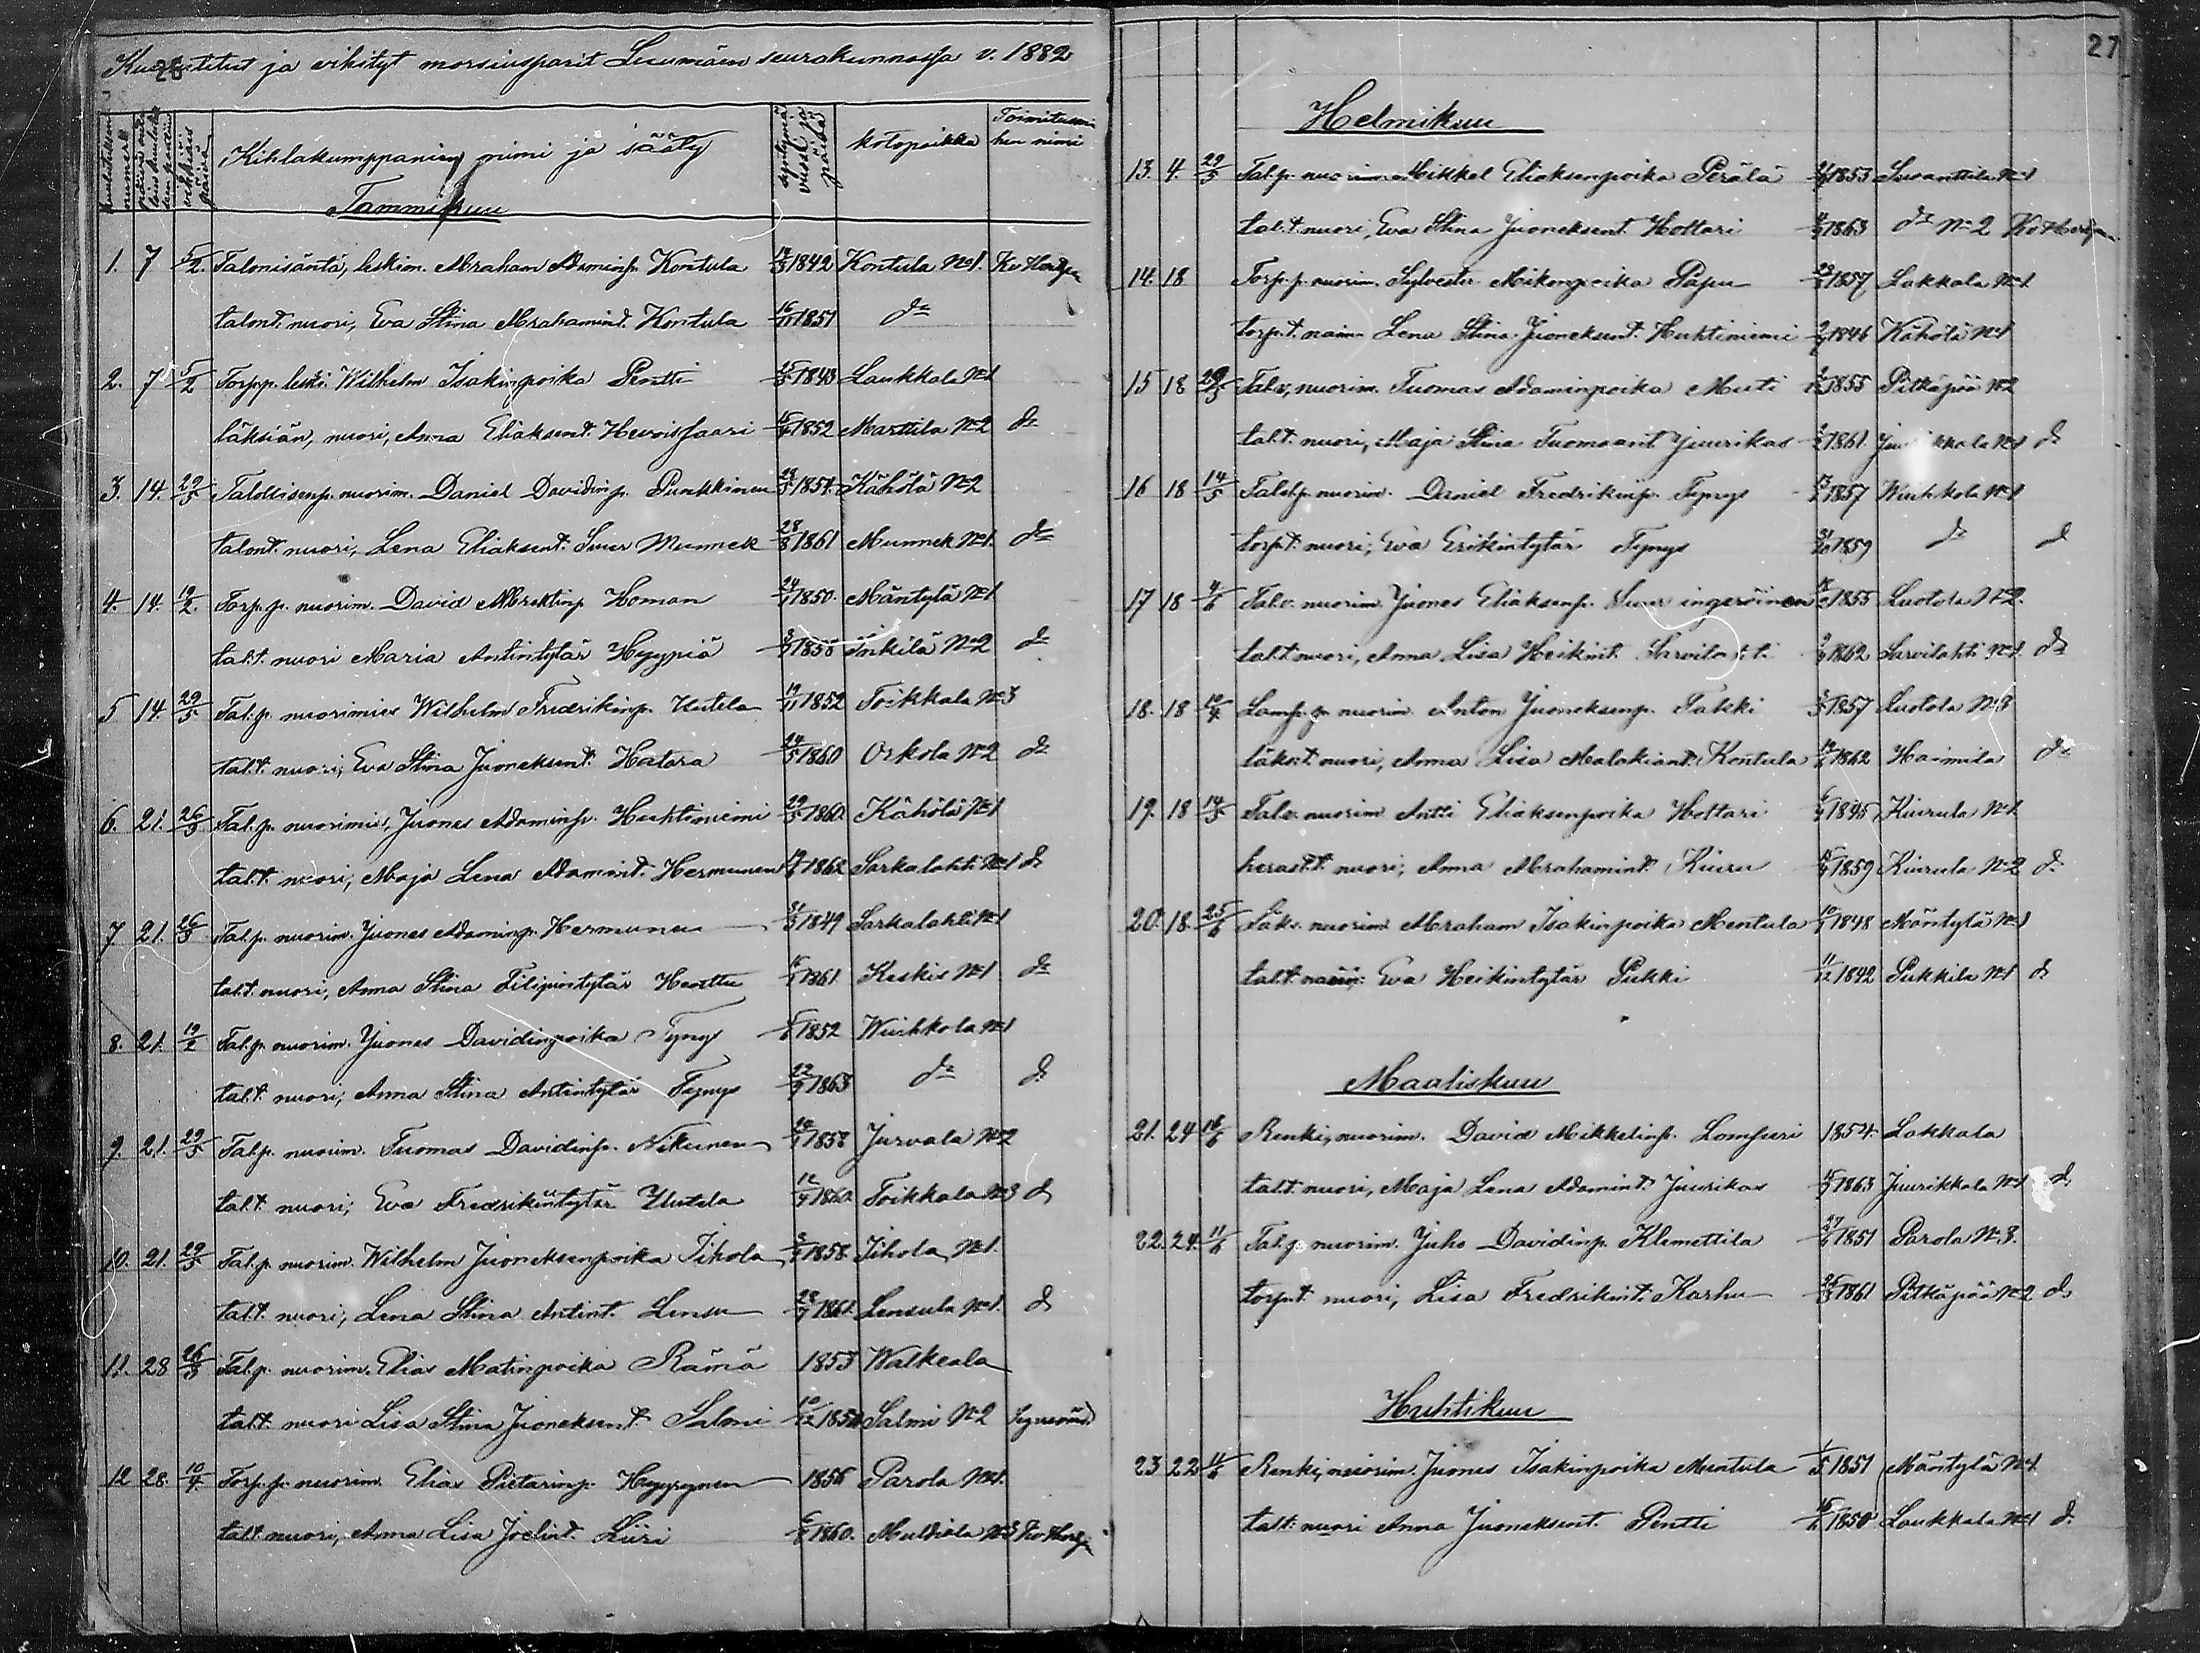 Kuulutetut ja vihityt morsiusparit Luumäen seurakunnassa v. 1882
26
kuulutuksen numero
vihkimis päivä
Kihlakumppanien nimi ja sääty
syntymä vuosi ja päivä
kotopaikka
Toimitusmiehen nimi
Tammikuu
1. 7 5/2. Talonisäntä, leskim. Abraham Adaminp. Kontula 1842 Kontula No 1.
talont. nuori, Eva Stina Abrahamint. Kontula 16/11 1851 do
2. 7 5/2 Torp.p. leski Wilhelm Isakinpoika Pentti 1843 Laukkala No 1
läksiän, nuori, Anna Eliaksent. Hevoissaari 1852 Marttila No 2 do
3. 14. 29/5 Talollisenp. nuorim. Daniel Davidinp. Punkkinen 1854. Kähölä No 2
talont. nuori, Lena Eliaksent. Suur Munnek 28/8 1861 Munnek No 1. do
4. 14. 19/2. Torp.p. nuorim. David Homan 1850. Mäntylä No 1
tal.t. nuori Maria Antintytär Hyypiä 1855 Inkilä No 2 do
5 14. 29/5 Tal.p. nuorimies Wilhelm Fredrikinp. Uutela 19/11 1852 Toikkala No 3
tal.t. nuori, Eva Stina Juoneksent. Hatara 24/5 1860 Orkola No 2 do
6. 21. 26/3 Tal.p. nuorimies, Juones Adaminp. Huhtiniemi 29/5 1860. Kähölä No 1
tal.t. nuori, Maja Lena Adamint. Hermunen 1862 Sarkalahti No 1 do
7 21. 26/3 Tal.p. nuorim. Juones Adaminp. Hermunen 31/3 1849 Sarkalahti No 1
tal.t. nuori, Anna Stina Filipintytär Henttu 1861. Keskis No 1 do
8. 21. 19/2 Tal.p. nuorim. Juones Davidinpoika Tynys 1852 Wiuhkola No 1
tal.t. nuori, Anna Stina Antintytär Tynys 22/9 1863 do do
9. 21. 29/5 Tal.p. nuorim. Tuomas Davidinp. Nikunen 1858 Jurvala No 2
tal.t. nuori; Eva Fredrikintytär Uutela 1860. Toikkala No 3 do
10. 21. 29/5 Tal.p. nuorim. Wilhelm Juoneksenpoika Iihola 1858. Iihola No 1.
tal.t. nuori, Lena Stina Antint. Lensu 28/7 1861. Lensula No 1. do
11. 28 26/3 Tal.p. nuorim. Elias Matinpoika Rämä 1853 Walkeala
tal.t. nuori Lisa Stina Juoneksent. Salmi Salmi No 2
12 28. 10/4 Torp.p. nuorim. Elias Pietarinp. Hyyrynen 1856 Parola No 1.
tal.t. nuori, Anna Lisa Joelint. Kiiri 1860. Multiala No 3
27
Helmikuu
13. 4. 29/5 Tal.p. nuorim. Mikkel Eliaksenpoika Perälä 1853 Suoanttila No 1
tal.t. nuori, Eva Stina Juoneksent. Hottari 1863 do No 2
14. 18 Torp.p. nuorim. Sylvester Mikonpoika Papu 1857 Lakkala No 1
torp.t. Lena Stina Juoneksent. Huhtiniemi 1846 Kähölä No 1
15 18 29/5 Tal.v, nuorim. Tuomas Adaminpoika Muti 1855 Pitkäpää No 2
tal.t. nuori, Maja Stina Tuomaant. Juurikas 1861. Juurikkala No 1 do
16 18 14/5 Tal.p. nuorim. Daniel Fredrikinp. Tynys 1857 Wiuhkola No 1
torp.t. nuori, Eva Erikintytär Tynys 31/10 1859 do do
17 18 4/6 Tal.v. nuorim. Juones Eliaksenp. Suur ingeröinen 1855 Luotola No 2.
tal.t. nuori, Anna Lisa Heikint. Sarvilahti 1862 Sarvilahti No 1. do
18. 18 10/4 Lamp.p. nuorim. Anton Juoneksenp. Takki 1857 Luotola No 3
läks.t. nuori, Anna Lisa Malakiant. Kontula 1862 Haimila do
19. 18 14/5 Tal.v. nuorim. Antti Eliaksenpoika Hottari 1845 Kiurula No 1
herast.t. nuori, Anna Abrahamint. Kiuru 1859 Kiurula No 2 do
20. 18. 25/6 Läks. nuorim. Abraham Isakinpoika Mentula 1848 Mäntylä No 1
tal.t. Eva Heikintytär Pukki 11/12 1842 Pukkila No 1 do
Maaliskuu
21. 24 18/6 Renki, nuorim. David Mikkelinp. Lompuri 1854. Lakkala
tal.t. nuori, Maja Lena Adamint. Juurikas 1863 Juurikkala No 1 do
22. 24. 11/6 Tal.p. nuorim. Juho Davidinp. Klemettila 1851 Parola No 3.
torp.t. nuori, Lisa Fredrikint. Karhu 1861 Pitkäpää No 2 do
Huhtikuu
23 22 11/6 Renki, nuorim. Juones Isakinpoika Mentula 1/5 1851 Mäntylä No 1.
tal.t. nuori Anna Juoneksent. Pentti 1850 Laukkala No 1 do